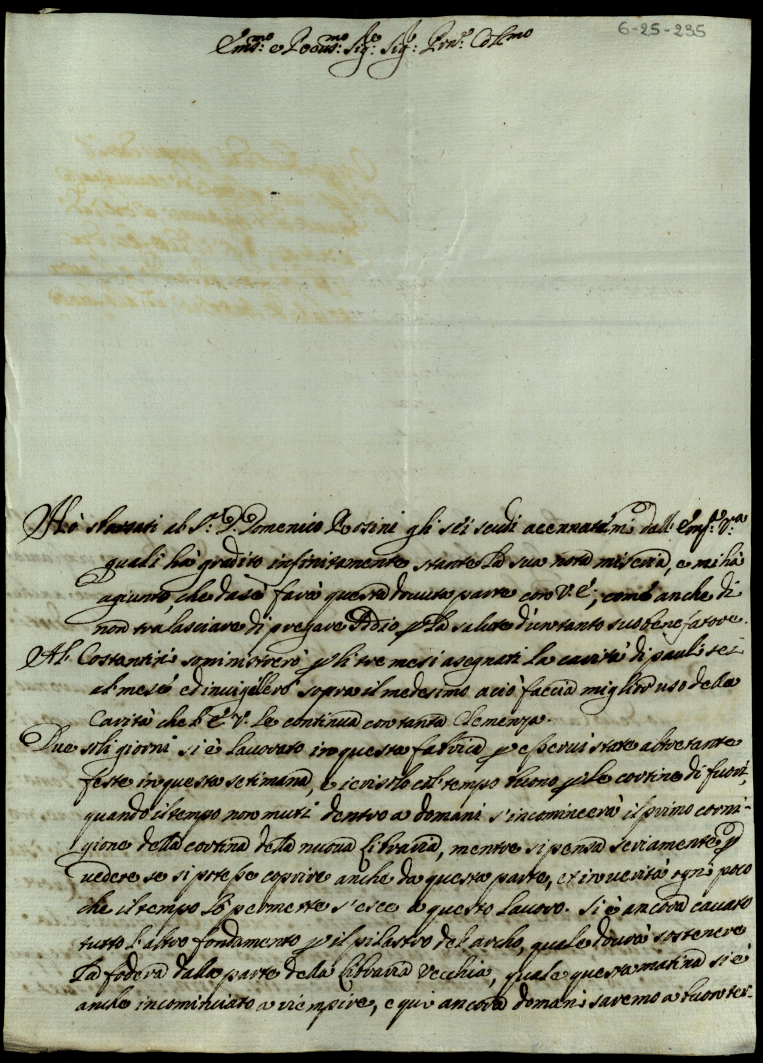 6-25-235
Em.mo e Rev.mo Sig.re Sig.re Prn.e Col.mo
Hò sborsati al S.r D. Domenico Rosini gli sei scudi accennatimi dall' Em.a V.a
quali hà gradito infinitamente stante la sua nota miseria, e mi hà
agiunto, che da se farà questa dovuta parte con V. E.; come anche di
non tralasciare di pregare Idio p la salute d'un tanto suo benefatore.
Al Costantini soministrerò p li tre mesi asegnati la carità di pauli sei
al mese ed invigilerò sopra il medesimo aciò faccia miglior uso della
Carità che l'E. V. le continua con tanta Clemenza.
Due soli giorni si è lavorato in questa fabrica p esservi state altretante
feste in questa setimana, e col tempo buono p le cortine di fuori,
quando il tempo non muti dentro a domani s'incomincerà il primo corni-
gione della cortina della nuova libraria, mentre si pensa seriamente p
vedere se si potesse coprire anche da questa parte, et in verità ogni poco
che il tempo lo permette s'esce a questo lavoro. Si è ancora cavato
tutto l'altro fondamento p il pilastro del archo, quale dovrà sostenere
la fodera dalla parte della libraria vecchia, quale questa matina si è
anche incominciato a riempire, e qui ancora domani saremo a buon ter-